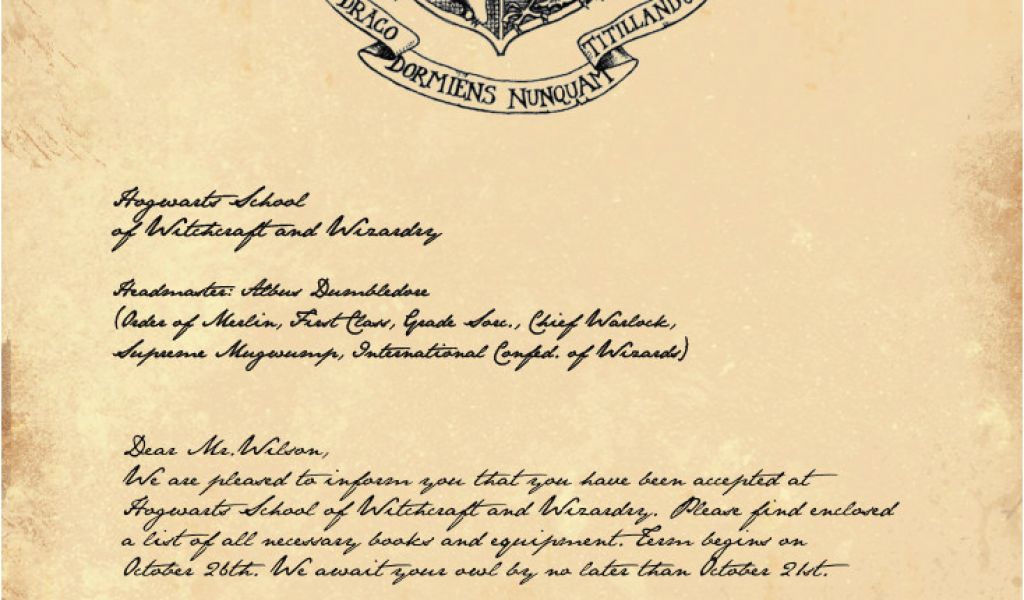 DRACO
DORMIENS NUNQUAM
TITILLANDUS
Hogwarts School
of Witchcraft and Wizardry
Headmaster: Albus Dumbledore
(Order of Merlin, First Class, Grade Sorc., Chief Warlock,
Supreme Mugwump, International Confed. of Wizards)
Dear Mr. Wilson,
We are pleased to inform you that you have been accepted at
Hogwarts School of Witchcraft and Wizardry. Please find enclosed
a list of all necessary books and equipment. Term begins on
October 26th. We await your owl by no later than October 21st.